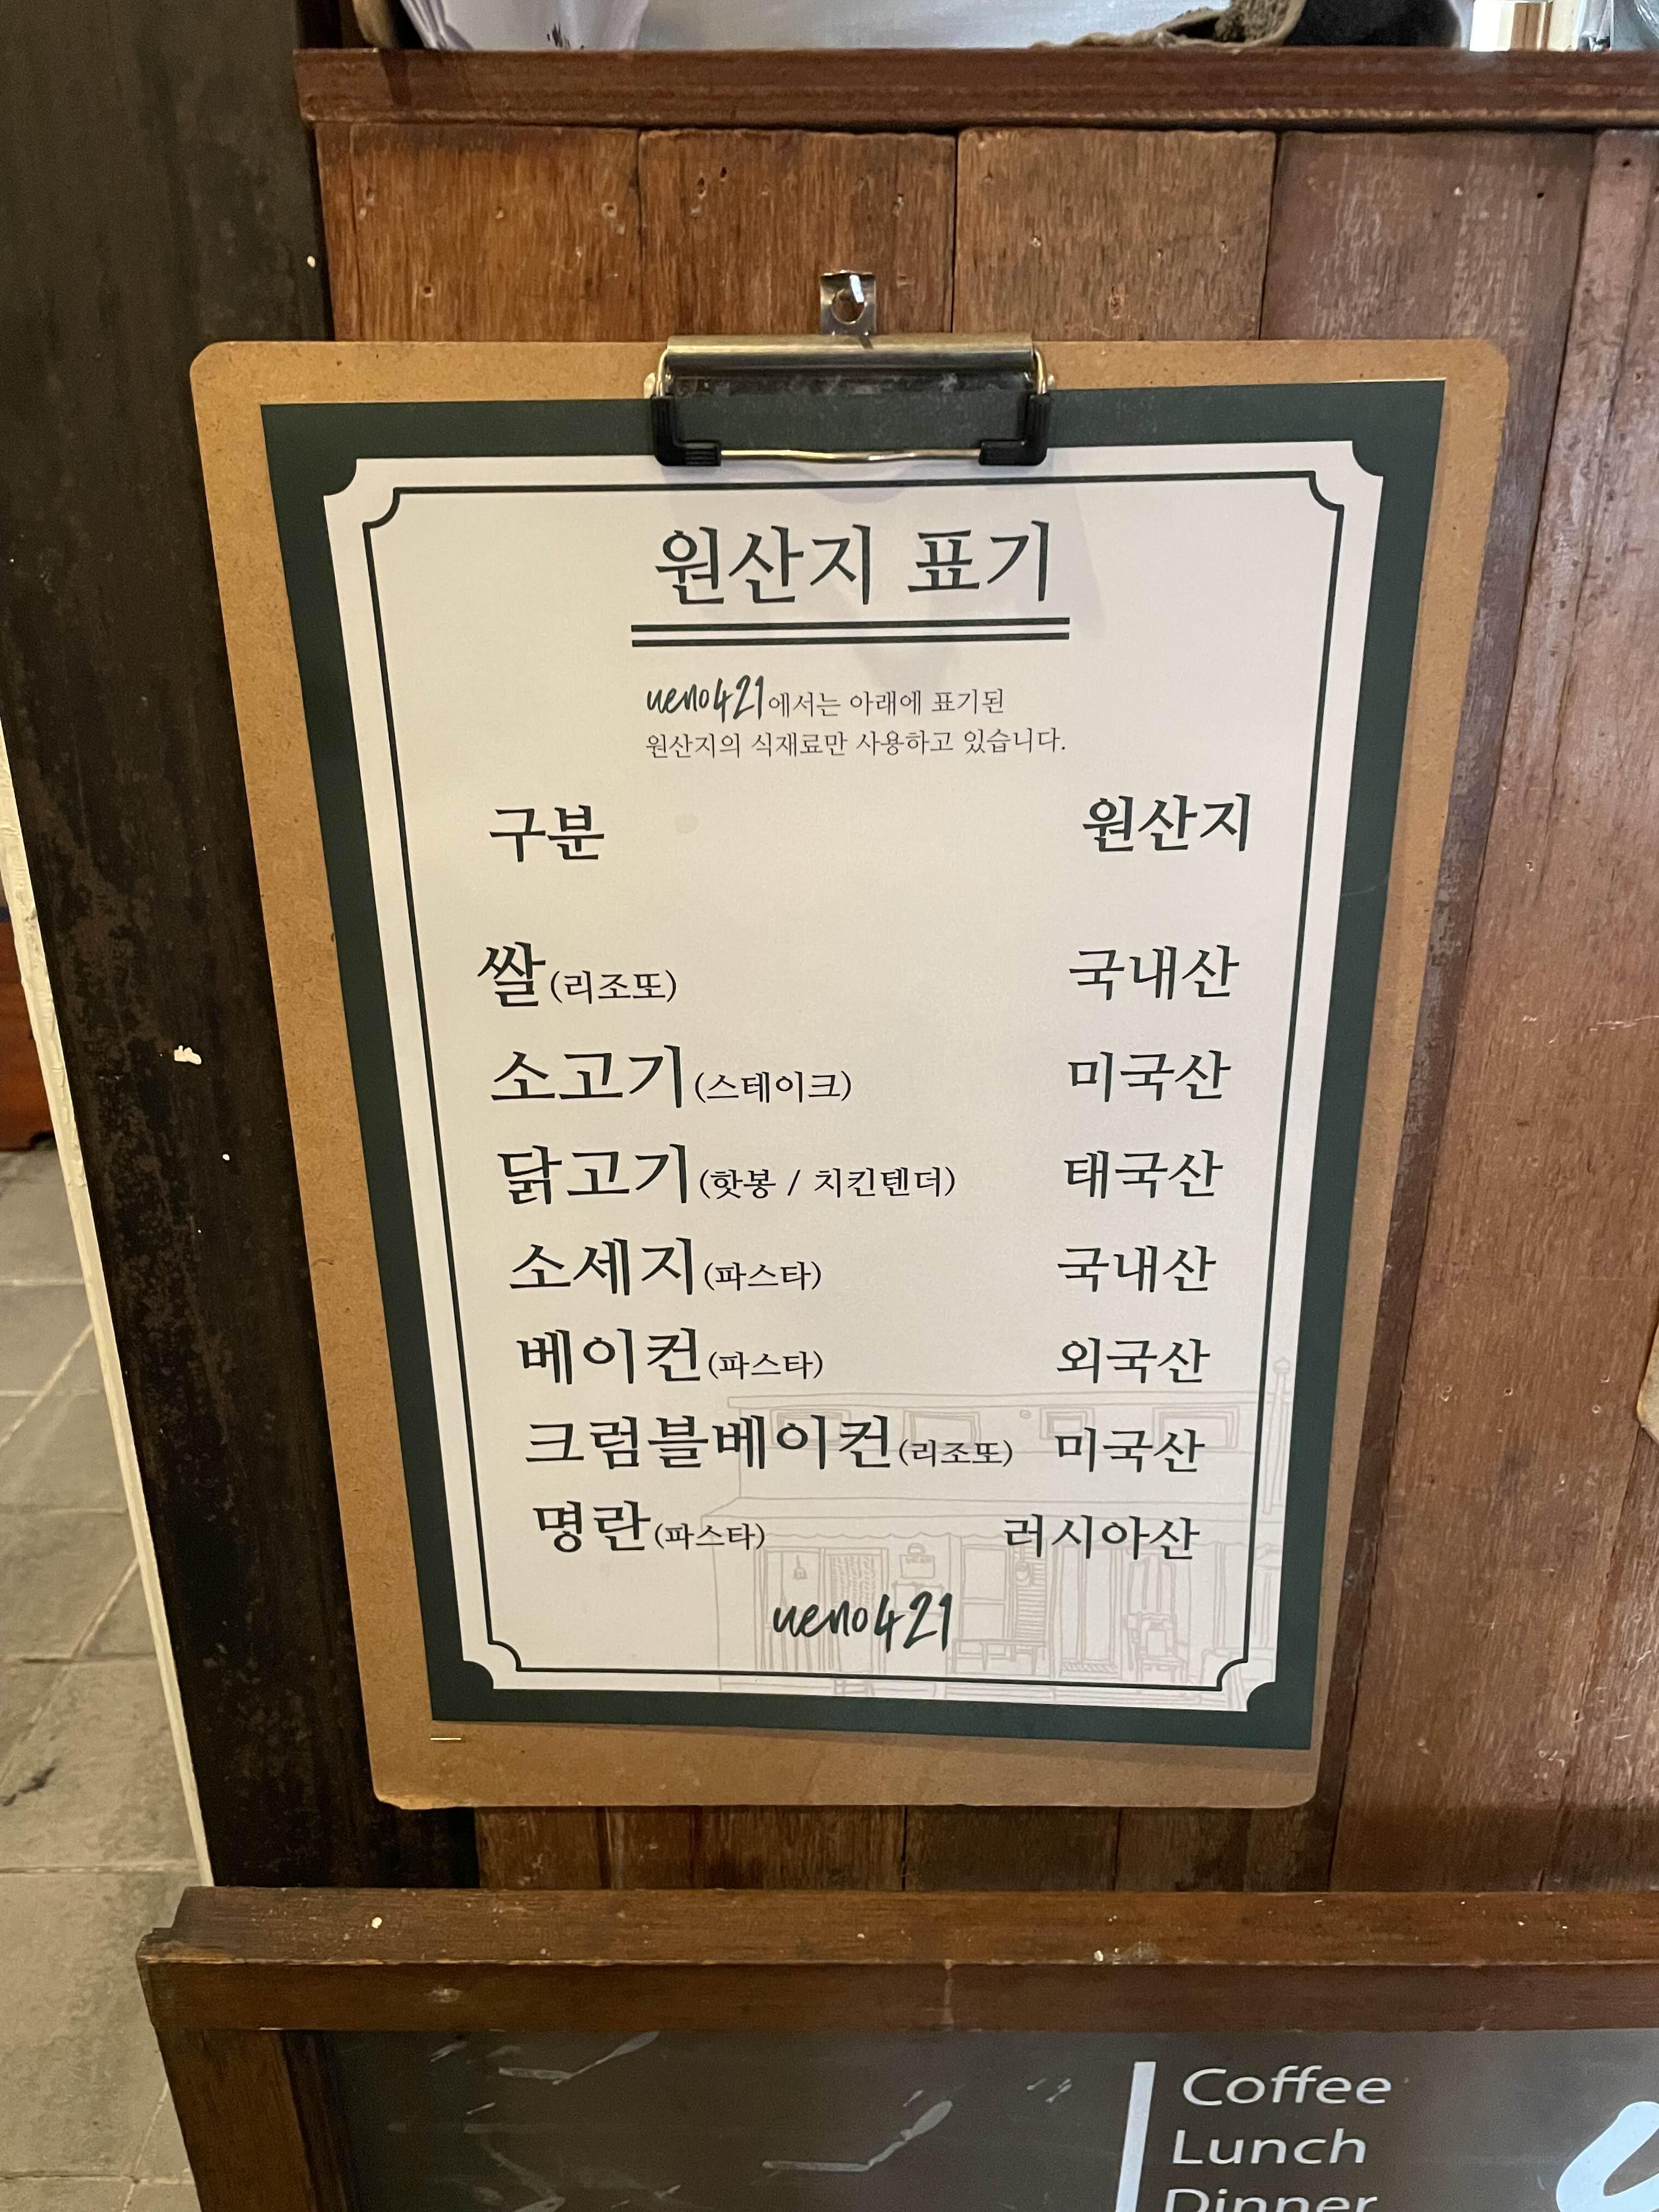 원산지 표기
ueno421에서는 아래에 표기된
원산지의 식재료만 사용하고 있습니다.
구분 원산지
쌀(리조또) 국내산
소고기(스테이크) 미국산
닭고기(핫봉 / 치킨텐더) 태국산
소세지(파스타) 국내산
베이컨(파스타) 외국산
크럼블베이컨(리조또) 미국산
명란(파스타) 러시아산
ueno421
Coffee
Lunch
Dinner